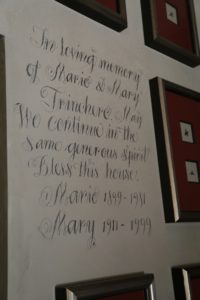 In loving memory
of Marié & Mary
Trincheré May
We continue in the
same generous spirit
Bless this house.
Marié 1899-1981
Mary 1911-1999